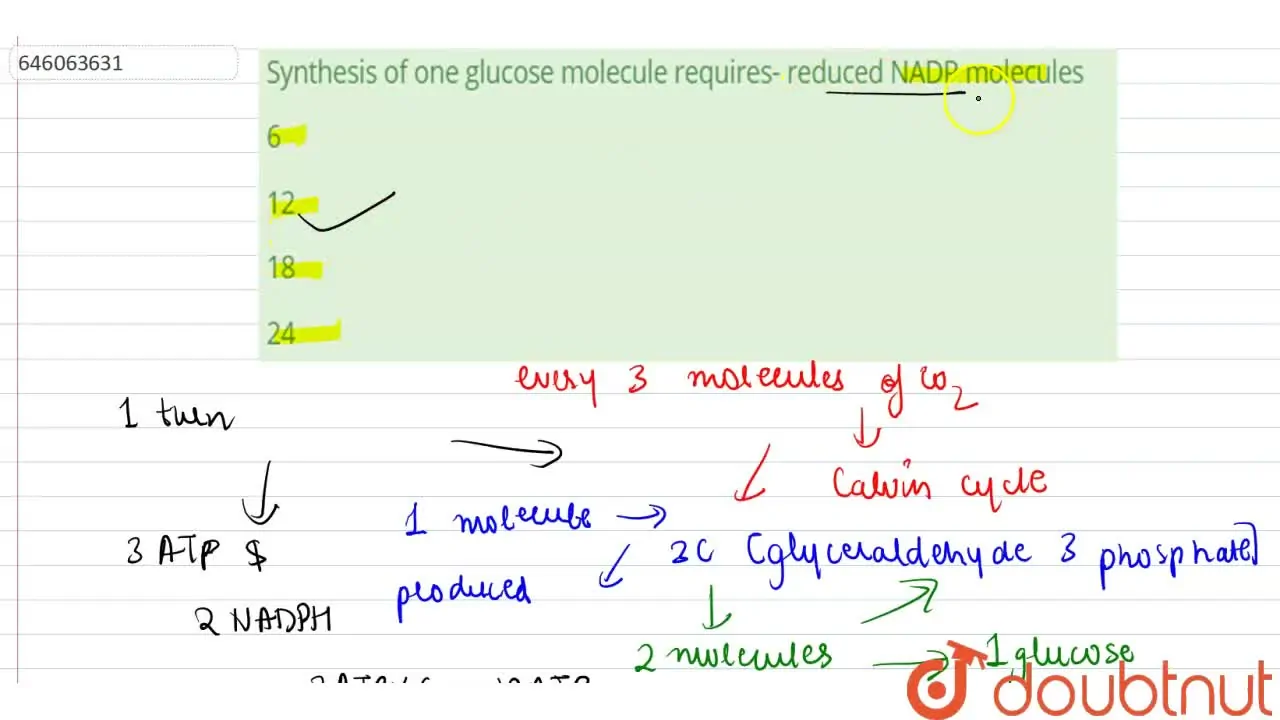 646063631
Synthesis of one glucose molecule requires- reduced NADP molecules
6
12
18
24
every 3 molecules of CO2
1 turn
Calvin cycle
1 molecule
3 ATP &
3C (glyceraldehyde 3 phosphate)
produced
2 NADPH
2 molecules
1 glucose
doubtnut